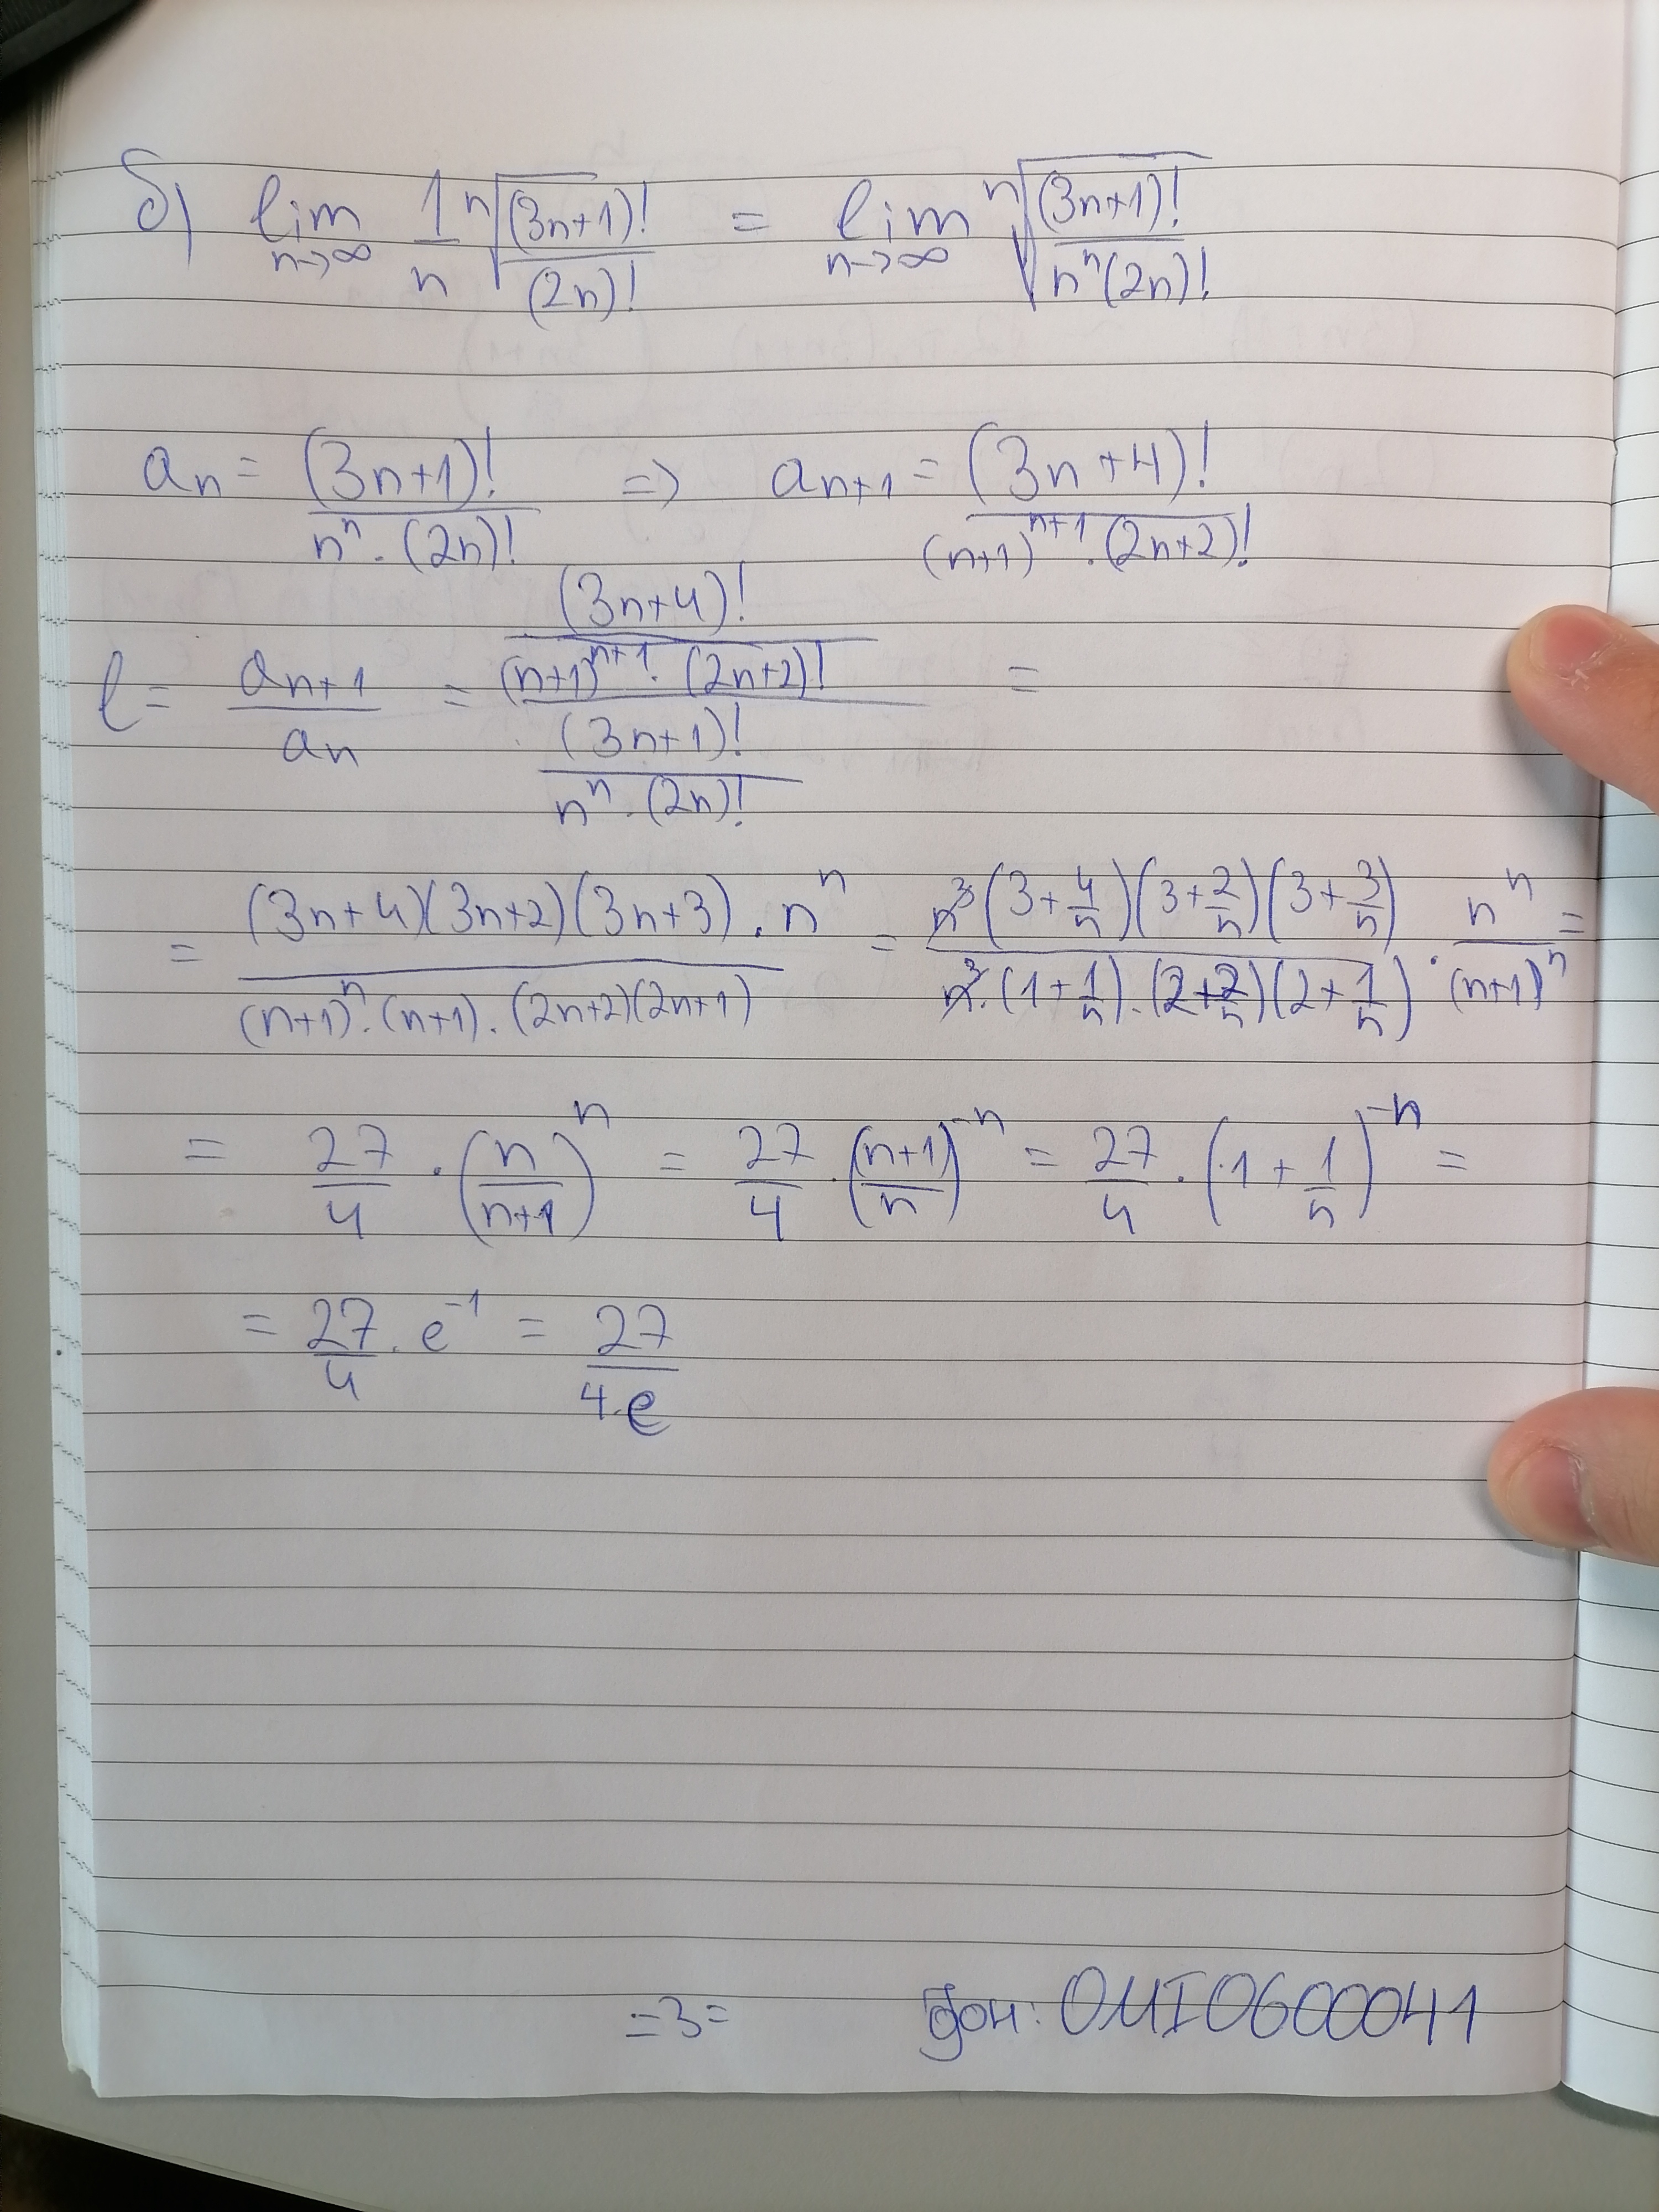 б) lim n→∞ 1/n ⁿ√((3n+1)!/(2n)!) = lim n→∞ ⁿ√((3n+1)!/(nⁿ(2n)!))
aₙ = (3n+1)!/(nⁿ.(2n)!) => aₙ₊₁ = (3n+4)!/((n+1)ⁿ⁺¹.(2n+2)!)
l = aₙ₊₁/aₙ = ((3n+4)!/((n+1)ⁿ⁺¹.(2n+2)!))/((3n+1)!/(nⁿ.(2n)!)) =
= ((3n+4)(3n+2)(3n+3).nⁿ)/((n+1)ⁿ.(n+1).(2n+2)(2n+1)) = (n³(3+4/n)(3+2/n)(3+3/n))/(n³.(1+1/n).(2+2/n)(2+1/n)) . nⁿ/(n+1)ⁿ =
= 27/4 . (n/(n+1))ⁿ = 27/4 . ((n+1)/n)⁻ⁿ = 27/4 . (1+1/n)⁻ⁿ =
= 27/4 . e⁻¹ = 27/4.e
=3= фон: 0MI0600041